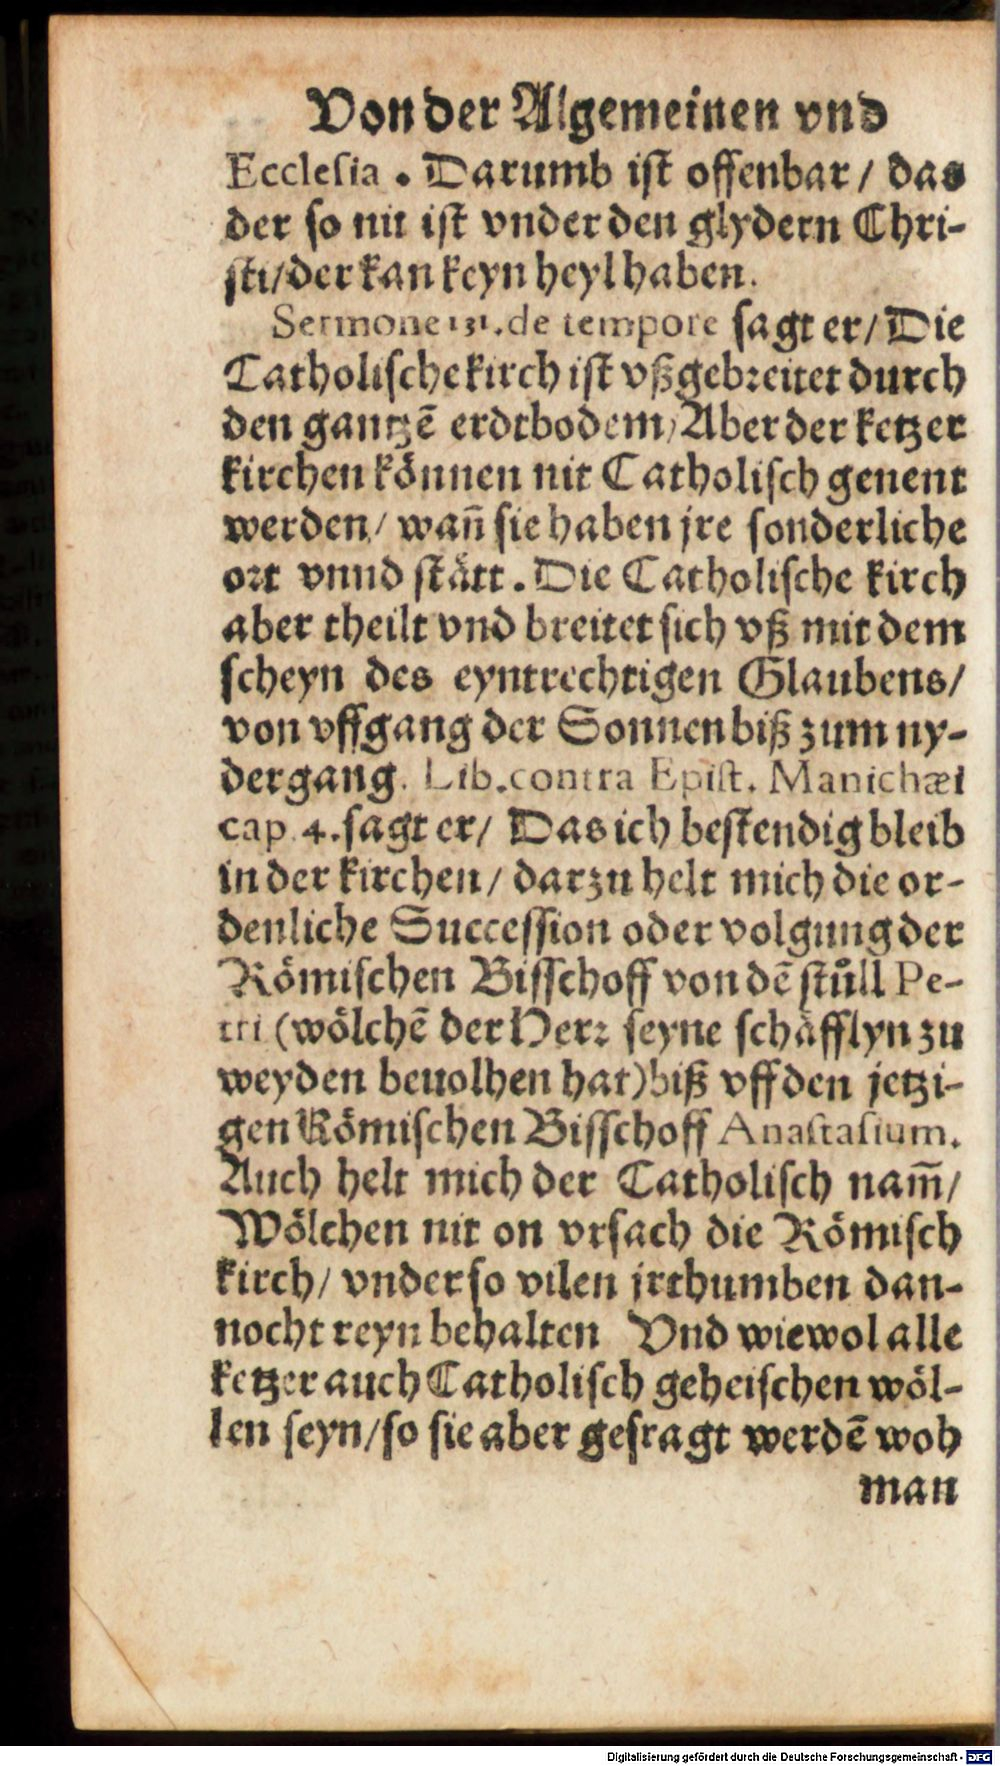 Von der Algemeinen vnd
Ecclesia . Darumb ist offenbar / das
der so nit ist vnder den glydern Chri-
sti/der kan keyn heyl haben.
Sermone 131. de tempore sagt er/ Die
Catholische kirch ist vßgebreitet durch
den gantzē erdtbodem/Aber der ketzer
kirchen können nit Catholisch genent
werden/ wañ sie haben jre sonderliche
ort vnnd stätt . Die Catholische kirch
aber theilt vnd breitet sich vß mit dem
scheyn des eyntrechtigen Glaubens/
von vffgang der Sonnen biß zum ny-
dergang. Lib. contra Epist. Manichæi
cap. 4. sagt er/ Das ich bestendig bleib
in der kirchen/ darzu helt mich die or-
denliche Succession oder volgung der
Römischen Bisschoff von dē stůll Pe-
tri (wölchē der Herr seyne schäfflyn zu
weyden beuolhen hat) biß vff den jetzi-
gen Römischen Bisschoff Anastasium.
Auch helt mich der Catholisch nam̄/
Wölchen nit on vrsach die Römisch
kirch/ vnder so vilen jrthumben dan-
nocht reyn behalten Vnd wiewol alle
ketzer auch Catholisch geheischen wöl-
len seyn/so sie aber gefragt werdē woh
man
Digitalisierung gefördert durch die Deutsche Forschungsgemeinschaft - DFG